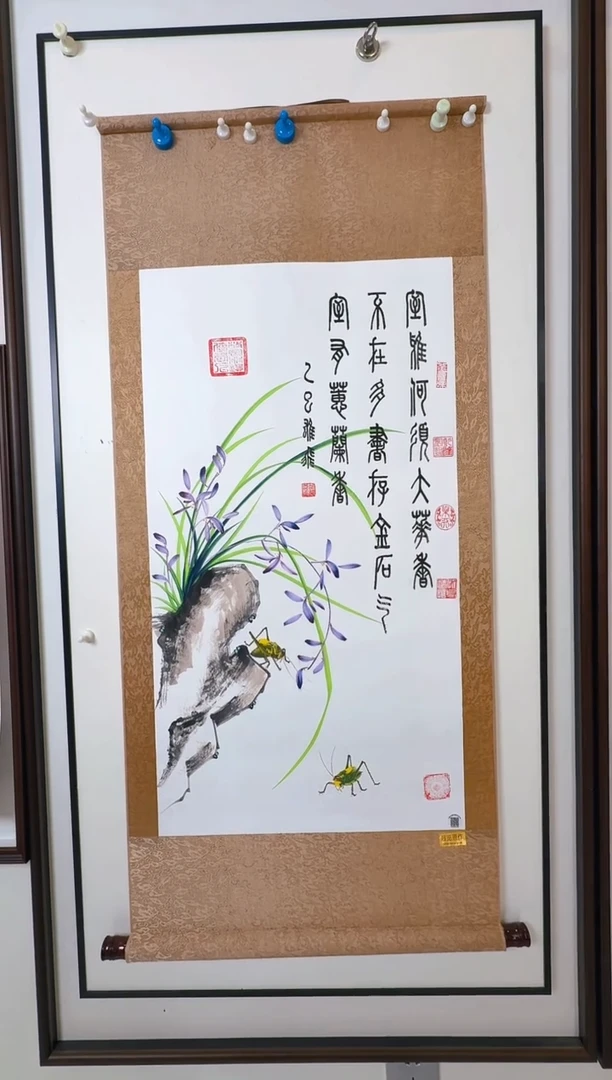 室雅何須大華香
不在多書存金石气
室有蕙蘭香
乙巳雅